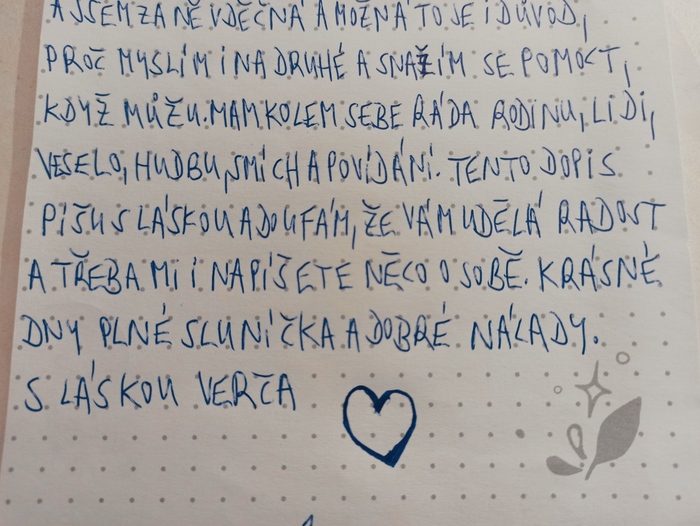 A JSEM ZA NĚ VDĚČNÁ A MOŽNÁ TO JE I DŮVOD,
PROČ MYSLÍM I NA DRUHÉ A SNAŽÍM SE POMOCT,
KDYŽ MŮŽU. MÁM KOLEM SEBE RÁDA RODINU, LIDI,
VESELO, HUDBU, SMÍCH A POVÍDÁNÍ. TENTO DOPIS
PÍŠU S LÁSKOU A DOUFÁM, ŽE VÁM UDĚLÁ RADOST
A TŘEBA MI I NAPÍŠETE NĚCO O SOBĚ. KRÁSNÉ
DNY PLNÉ SLUNÍČKA A DOBRÉ NÁLADY.
S LÁSKOU VERČA